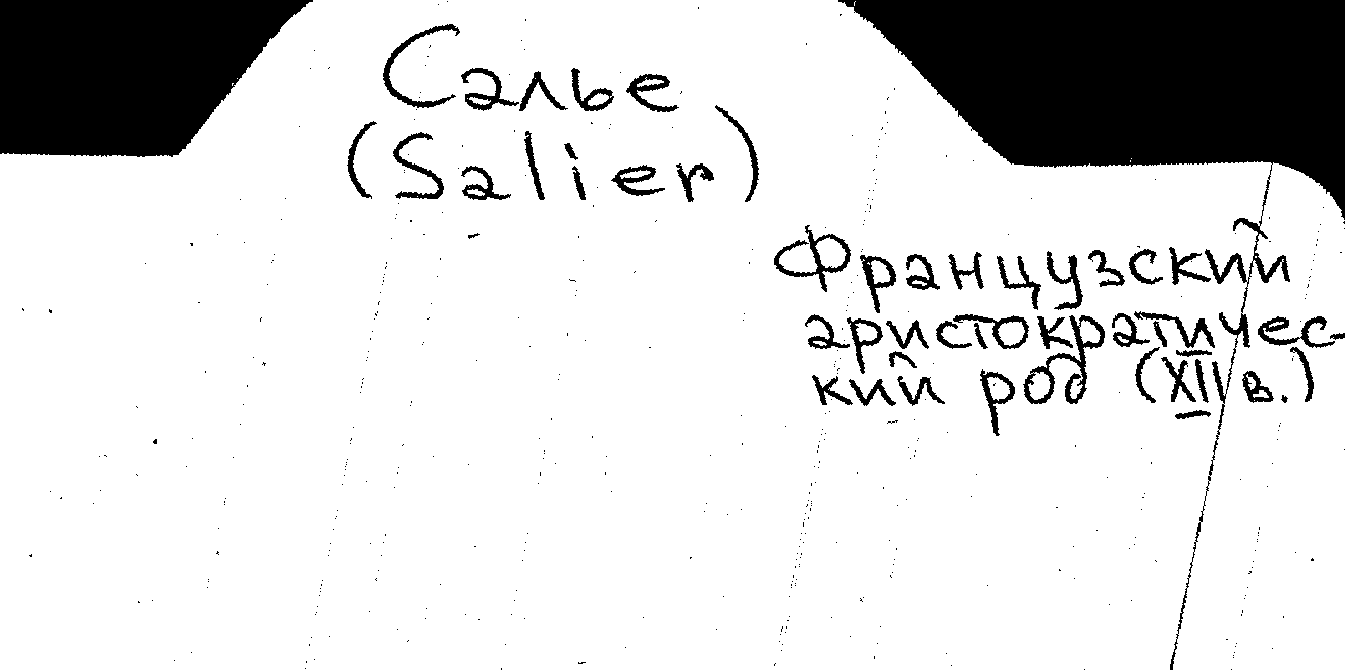 Салье
(Salier)
Французский
аристократичес-
кий род (XII в.)